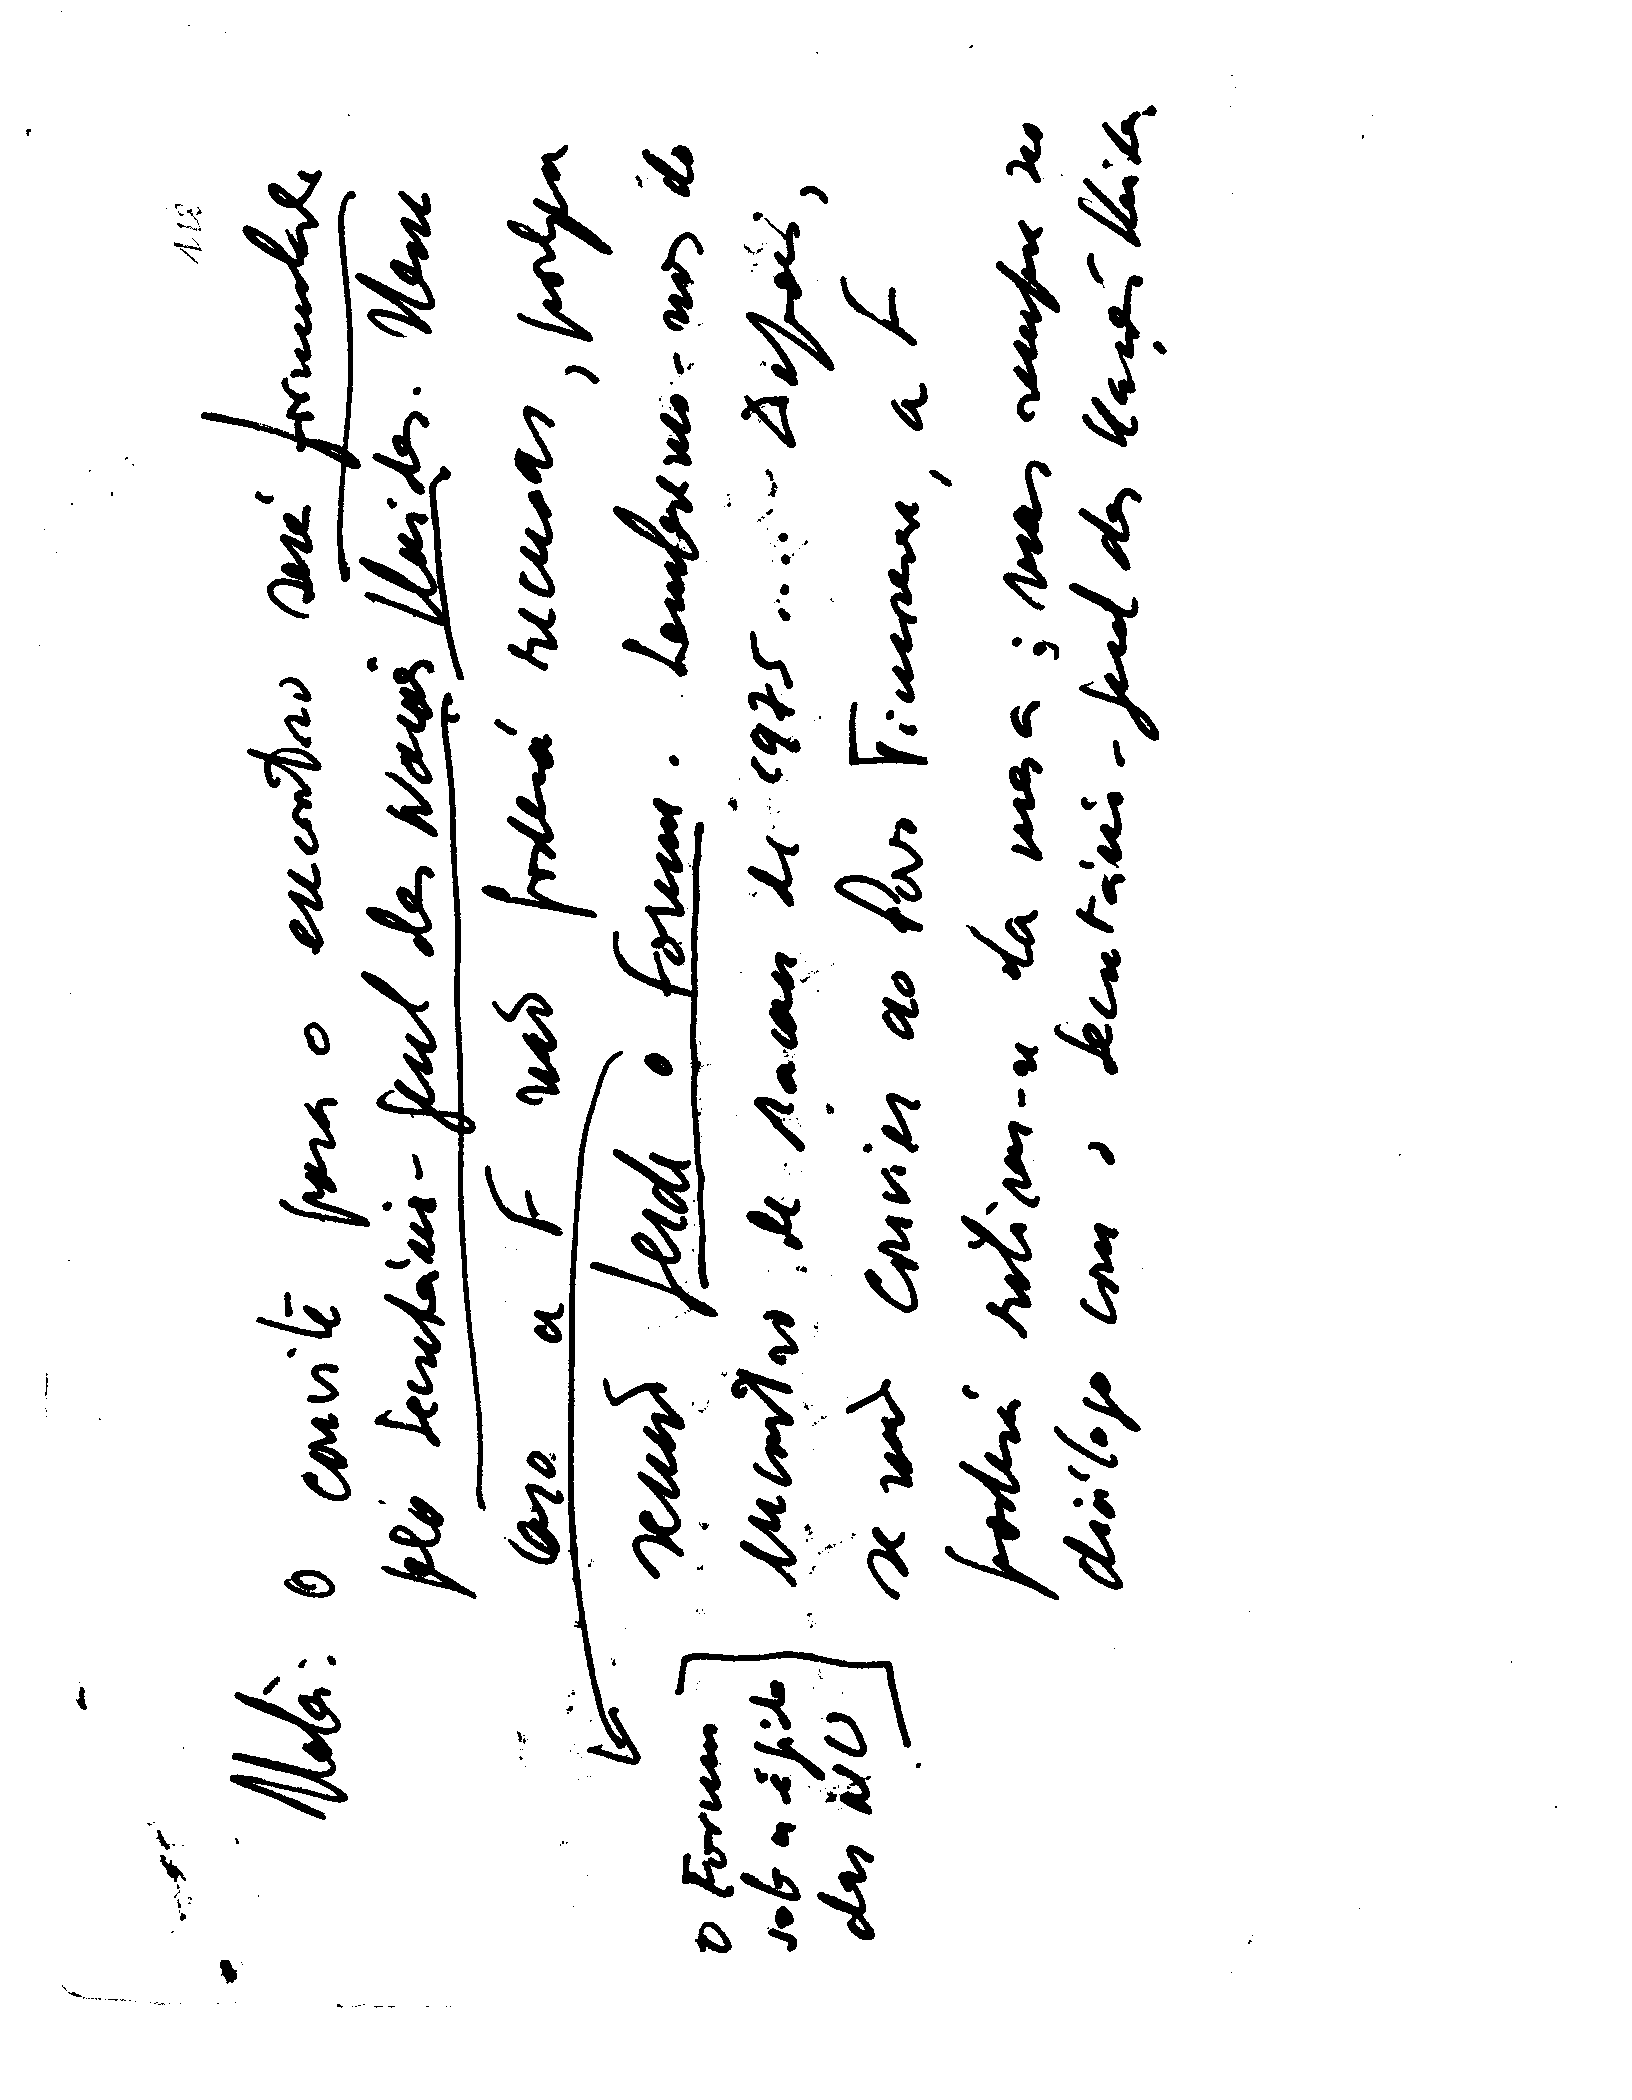 Nota: O convite para o encontro será formulado
pelo Secretário-geral das Nações Unidas. Nem
caso a F não poderá recusar, porque
senão perde o Forum. Lembremo-nos do
encontro de Macau de 1975.... Depois,
se não convier ao Povo Timorense, a F
poderá retirar-se da mesa; mas sempre no
diálogo com o Secretário-geral das Nações Unidas.
O Forum
sob a égide
das NU
118